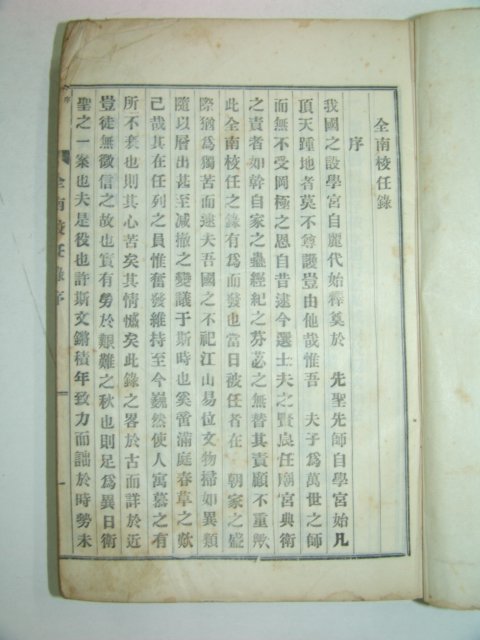 全南校任錄
序
我國之設學宮自麗代始釋奠於 先聖先師自學宮始凡
頂天踵地者莫不尊護豈由他哉惟吾 夫子爲萬世之師
而無不受罔極之恩自昔逮今選士夫之賢良任廟宮典衛
之責者如幹自家之蠱經紀之芬苾之無替其責顧不重歟
此全南校任之錄有爲而發也當日被任者在 朝家之盛
際猶爲獨苦而逮夫吾國之不祀江山易位文物掃如異類
隨以層出甚至减撤之變議于斯時也奚啻滿庭春草之歎
己哉其在任列之員惟奮發維持至今巍然使人寓慕之有
所不衰也則其心苦矣其情慽矣此錄之畧於古而詳於近
豈徒無徵信之故也實有勞於艱難之秋也則足爲異日衛
聖之一案也夫是役也許斯文鏘積年致力而詘於時勞未
序
全南校任錄序
一